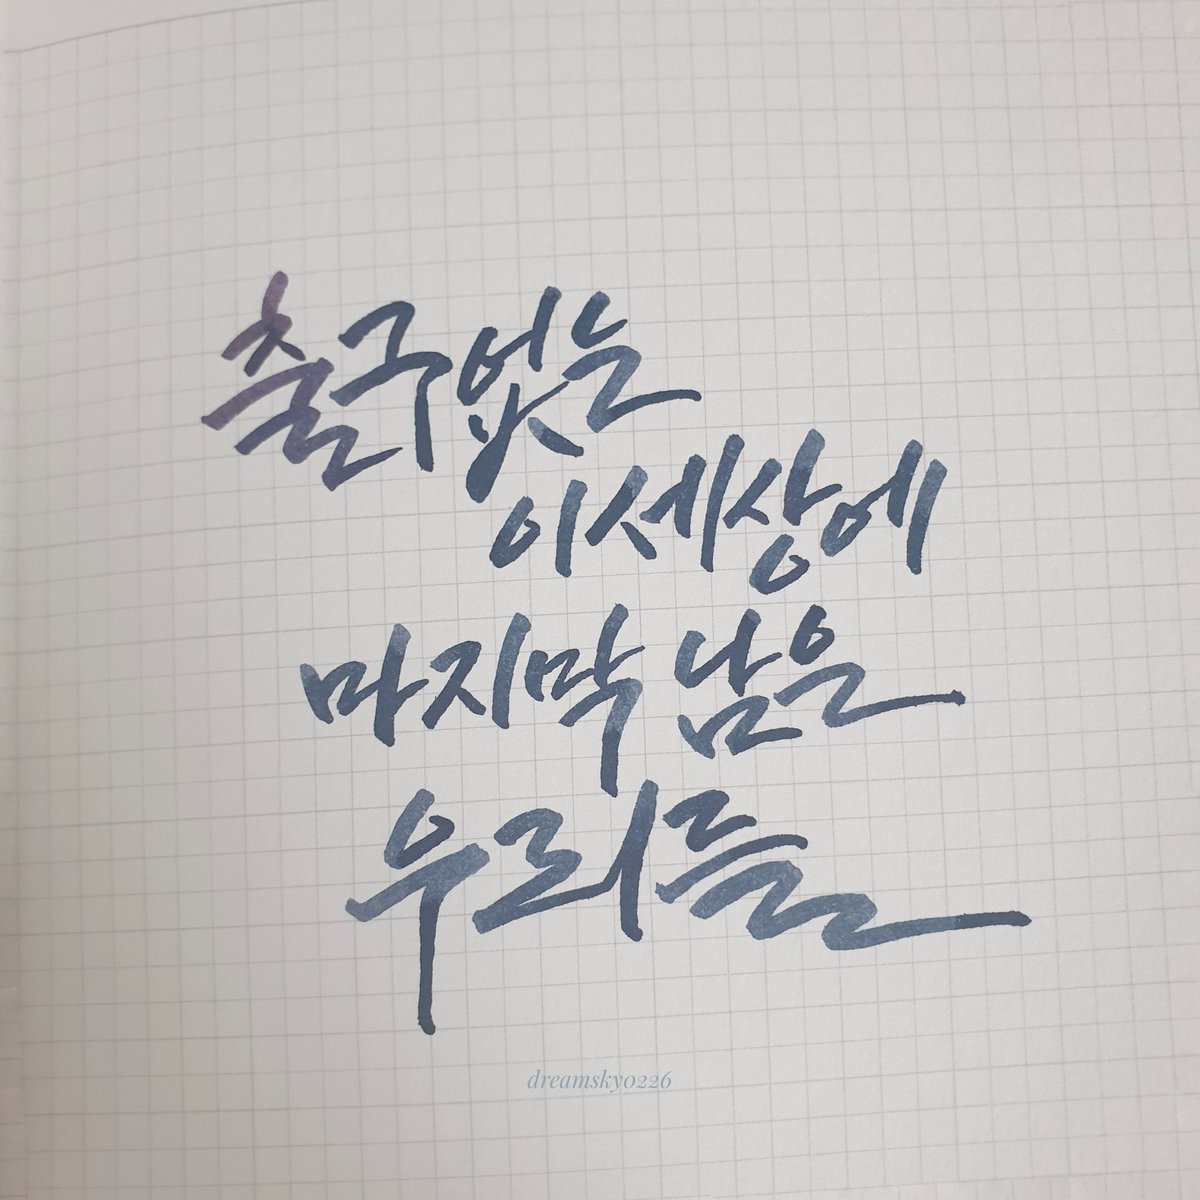 출구 없는
이 세상에
마지막 남은
우리들
dreamsky0226